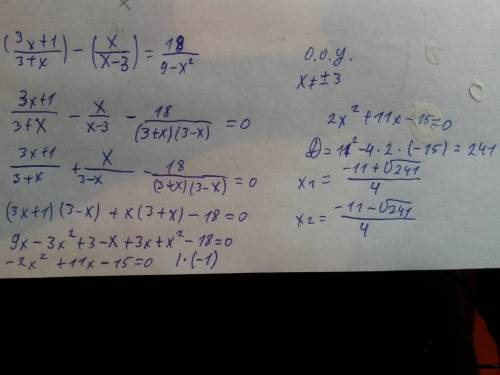 (3x+1/3+x) - (x/x-3) = 18/9-x²
3x+1/3+x - x/x-3 - 18/(3+x)(3-x) = 0
3x+1/3+x + x/3-x - 18/(3+x)(3-x) = 0
(3x+1)(3-x) + x(3+x) - 18 = 0
9x - 3x² + 3 - x + 3x + x² - 18 = 0
-2x² + 11x - 15 = 0 | · (-1)
О.О.У.
x ≠ ± 3
2x² + 11x - 15 = 0
D = 11² - 4 · 2 · (-15) = 241
x₁ = -11 + √241/4
x₂ = -11 - √241/4